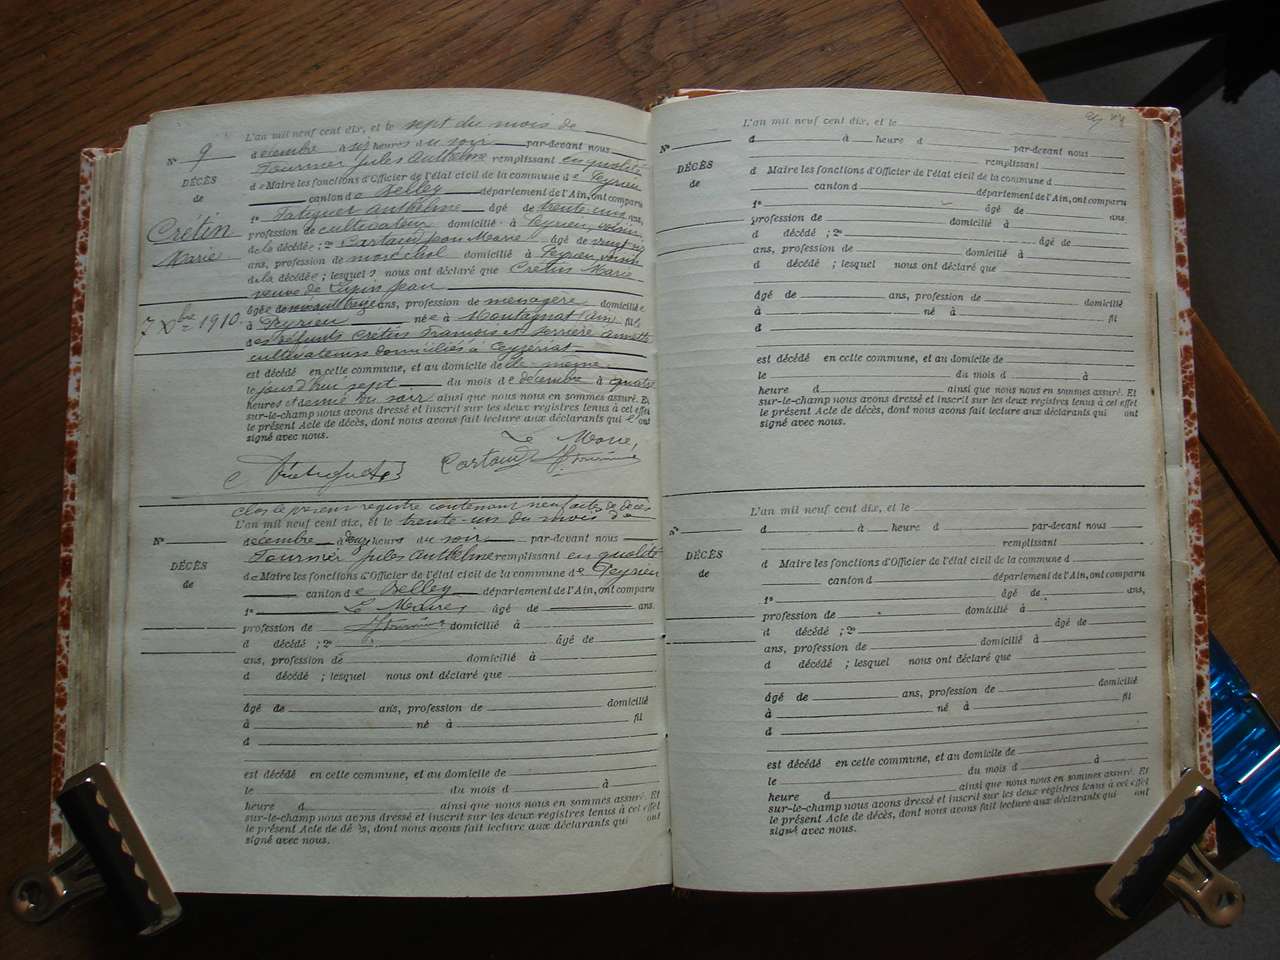 L'an mil neuf cent dix, et le sept du mois de
Nº 9
décembre à six heures du soir par-devant nous
Fournier Jules Anthelme remplissant en qualité
DÉCÈS
de Maire les fonctions d'Officier de l'état civil de la commune de Peyrieu
de
canton de Belley département de l'Ain, ont comparu
1º Anthelme âgé de trente un ans,
Crétin
profession de cultivateur domicilié à Peyrieu, voisin
Marie
de la décédée ; 2º Cartaud Jean Marie âgé de vingt
ans, profession de maréchal domicilié à Peyrieu, voisin
de la décédée ; lesquels nous ont déclaré que Crétin Marie
veuve de Jean
âgée de ans, profession de ménagère domiciliée
7 Xbre 1910
à Peyrieu née à Montagnat (Ain) fille
des défunts Crétin François et Annette
cultivateurs domiciliés à Ceyzériat
est décédé en cette commune, et au domicile de elle même
le jourd'hui sept du mois de décembre à quatre
heures et demie du soir ainsi que nous nous en sommes assuré. Et
sur-le-champ nous avons dressé et inscrit sur les deux registres tenus à cet effet
le présent Acte de décès, dont nous avons fait lecture aux déclarants qui ont
signé avec nous.
Le Maire,
Cartaud J. Fournier
Clos le présent registre contenant neuf actes de décès
L'an mil neuf cent dix, et le trente-un du mois de
Nº
décembre à heures du soir par-devant nous
Fournier Jules Anthelme remplissant en qualité
DÉCÈS
de Maire les fonctions d'Officier de l'état civil de la commune de Peyrieu
de
canton de Belley département de l'Ain, ont comparu
1º Le Maire, âgé de ans,
profession de J. Fournier domicilié à
d décédé ; 2º âgé de
ans, profession de domicilié à
d décédé ; lesquel nous ont déclaré que
âgé de ans, profession de domicilié
à né à fil
d
est décédé en cette commune, et au domicile de
le du mois d à
heure d ainsi que nous nous en sommes assuré. Et
sur-le-champ nous avons dressé et inscrit sur les deux registres tenus à cet effet
le présent Acte de décès, dont nous avons fait lecture aux déclarants qui ont
signé avec nous.
L'an mil neuf cent dix, et le
Nº
d à heure d par-devant nous
remplissant
DÉCÈS
d Maire les fonctions d'Officier de l'état civil de la commune d
de
canton d département de l'Ain, ont comparu
1º âgé de ans
profession de domicilié à
d décédé ; 2º âgé de
ans, profession de domicilié à
d décédé ; lesquel nous ont déclaré que
âgé de ans, profession de domicilié
à né à fil
d
est décédé en cette commune, et au domicile de
le du mois d à
heure d ainsi que nous nous en sommes assuré. Et
sur-le-champ nous avons dressé et inscrit sur les deux registres tenus à cet effet
le présent Acte de décès, dont nous avons fait lecture aux déclarants qui ont
signé avec nous.
L'an mil neuf cent dix, et le
Nº
d à heure d par-devant nous
remplissant
DÉCÈS
d Maire les fonctions d'Officier de l'état civil de la commune d
de
canton d département de l'Ain, ont comparu
1º âgé de ans,
profession de domicilié à
d décédé ; 2º âgé de
ans, profession de domicilié à
d décédé ; lesquel nous ont déclaré que
âgé de ans, profession de domicilié
à né à fil
d
est décédé en cette commune, et au domicile de
le du mois d à
heure d ainsi que nous nous en sommes assuré. Et
sur-le-champ nous avons dressé et inscrit sur les deux registres tenus à cet effet
le présent Acte de décès, dont nous avons fait lecture aux déclarants qui ont
signé avec nous.